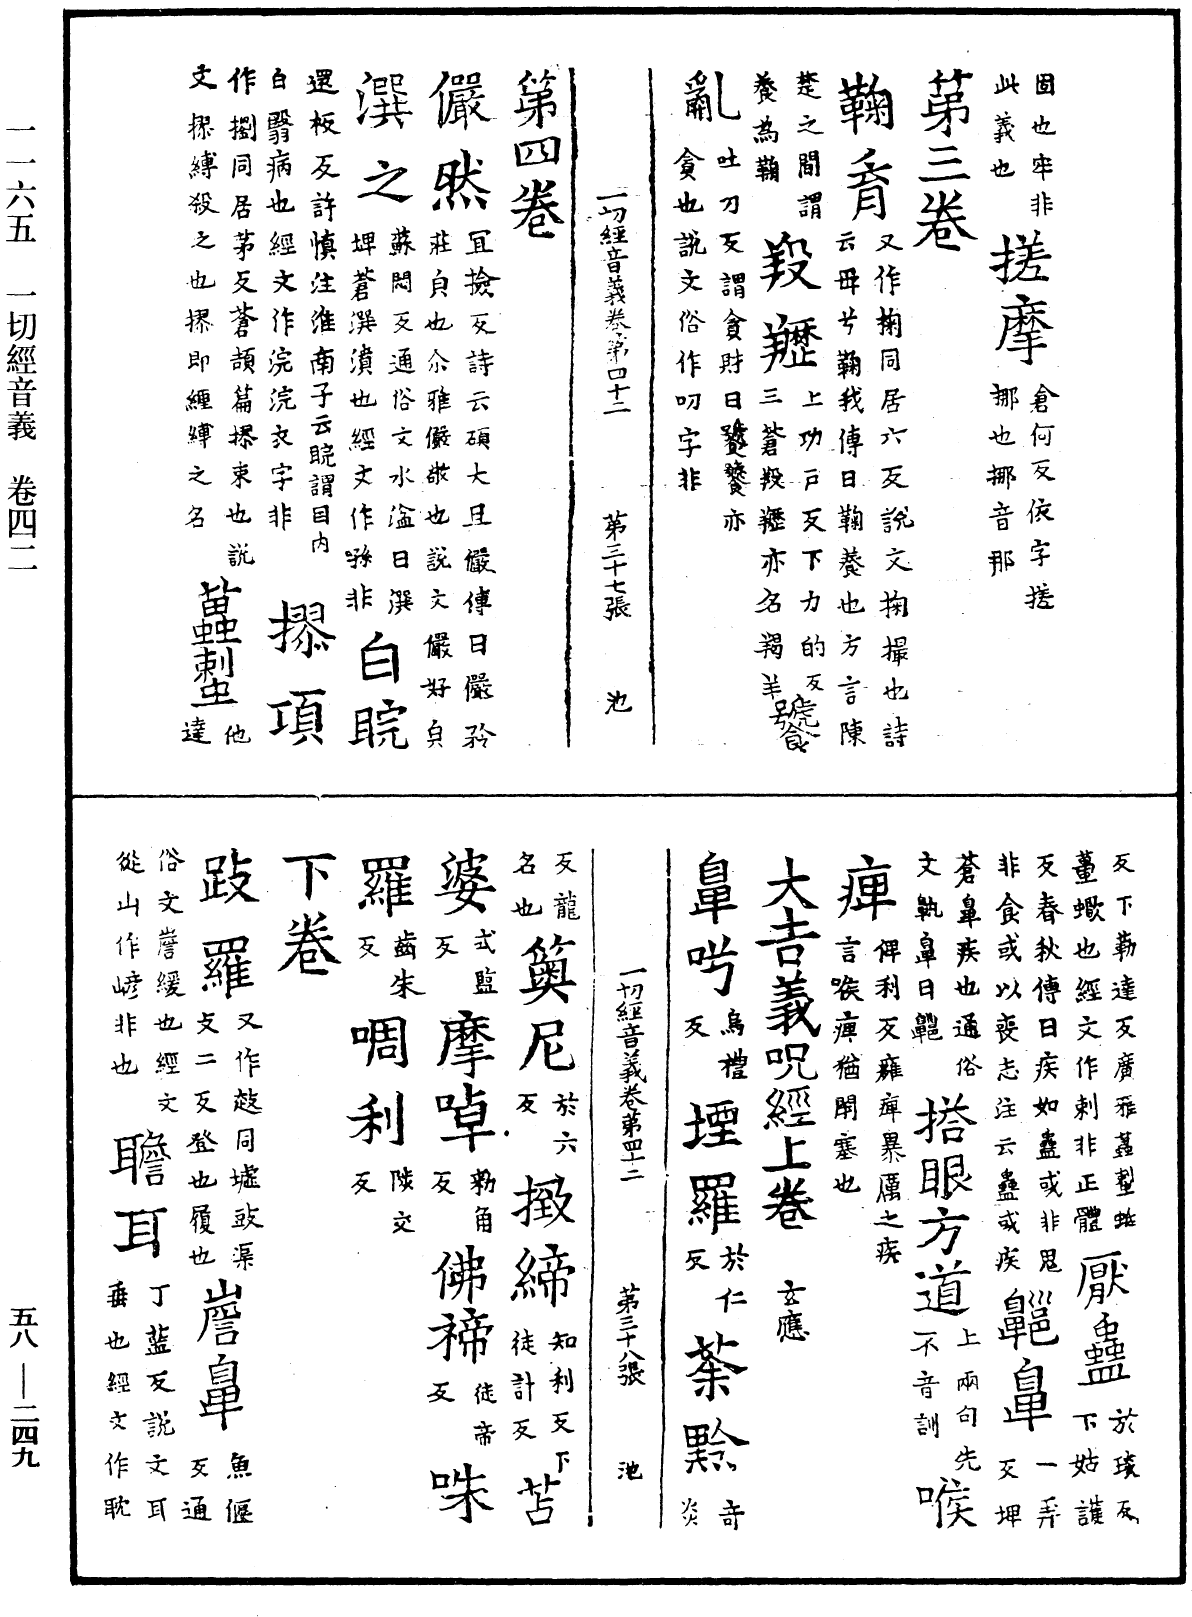 一一六五　一切經音義　卷四二
五八—二四九
固也牢非
此義也
搓摩
倉何反依字搓
挪也挪音那
第三卷
鞠育
又作掬同居六反說文掬撮也詩
云毋兮鞠我傳曰鞠養也方言陳
楚之間謂
養為鞠
羖䍽
上功戶反下力的反
三蒼羖䍽亦名羯羊
饕
亂
吐刀反謂貪財曰饕饕亦
貪也說文俗作叨字非
一切經音義卷第四十二　第三十七張　池
第四卷
儼然
冝撿反詩云碩大且儼傳曰儼矜
莊皃也尒雅儼敬也說文儼好皃
潠之
蘇悶反通俗文水湓曰潠
埤蒼潠濆也經文作㗔非
白睆
還板反許慎注淮南子云睆謂目內
白翳病也經文作浣浣衣字非
摎項
作摎同居茅反蒼頡篇摎束也說
文摎縛殺之也摎即纏縛之名
蠆螫
他
達
反下勒達反廣雅蠆蛪蚔
蠆蠍也經文作剌非正體
厭蠱
於琰反
下姑護
反春秋傳曰疾如蠱或非鬼
非食或以喪志注云蠱或疾
齆鼻
一弄
反埤
蒼鼻疾也通俗
文鼽鼻曰齆
搭眼方道
上兩句先
不音訓
喉
痺
俾利反癰痺暴厲之疾
言喉痺猶閉塞也
大吉義呪經上卷
玄應
鼻吁
烏禮
反
堙羅
於仁
反
荼黔
奇
炎
一切經音義卷第四十二　第三十八張　池
反龍
名也
薁尼
於六
反
緻締
知利反下
徒計反
苫
婆
式監
反
摩啅
勑角
反
佛褅
徒帝
反
咮
羅
齒朱
反
啁利
陟交
反
下卷
跂羅
又作䟸同墟豉渠
攴二反登也履也
㟴鼻
魚偃
反通
俗文㟴緩也經文
從山作嵃非也
聸耳
丁藍反說文耳
垂也經文作耽